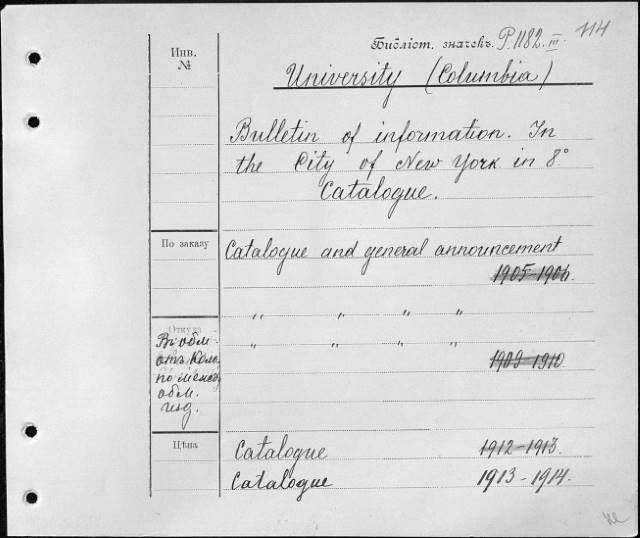 114
Бібліот. значекъ. P. 1182. III
Инв.
№
University (Columbia)
Bulletin of information. In
the City of New York in 8°
Catalogue.
По заказу
Catalogue and general announcement
1905-1906.
„ „ „ „
Откуда
„ „ „ „
Въ обм.
отъ Ком.
1909-1910.
по межд.
обм.
изд.
Цѣна
Catalogue 1912-1913.
Catalogue 1913-1914.